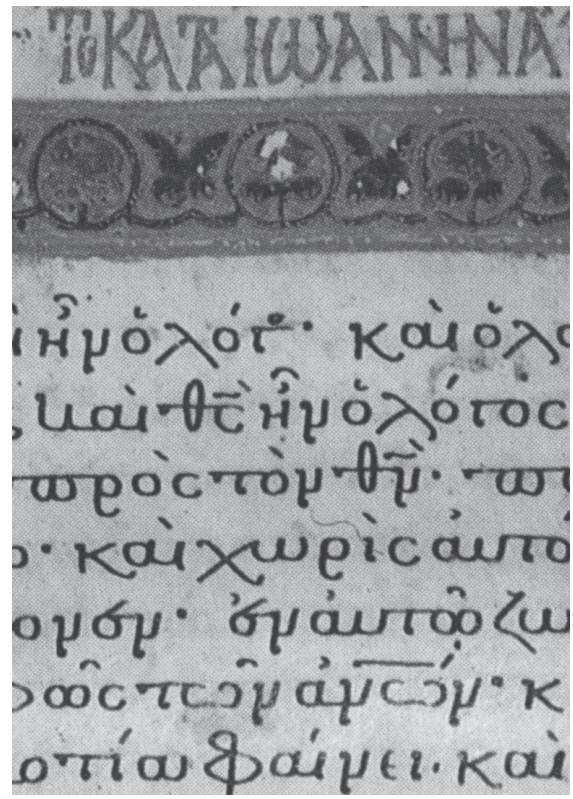 Το ΚΑΤΑ ΙΩΑΝΝΗΝ Α
ἦν ὁ λόγο· καὶ ὁ λο
ς καὶ θ̅ς̅ ἦν ὁ λόγος
πρὸς τὸν θ̅ν̅· πα
ο· καὶ χωρὶς αὐτο
ονεν· ἐν αὐτῶ ζω
φῶς τῶν ἀ̅ν̅ω̅ν· κ
οτία φαίνει· καὶ